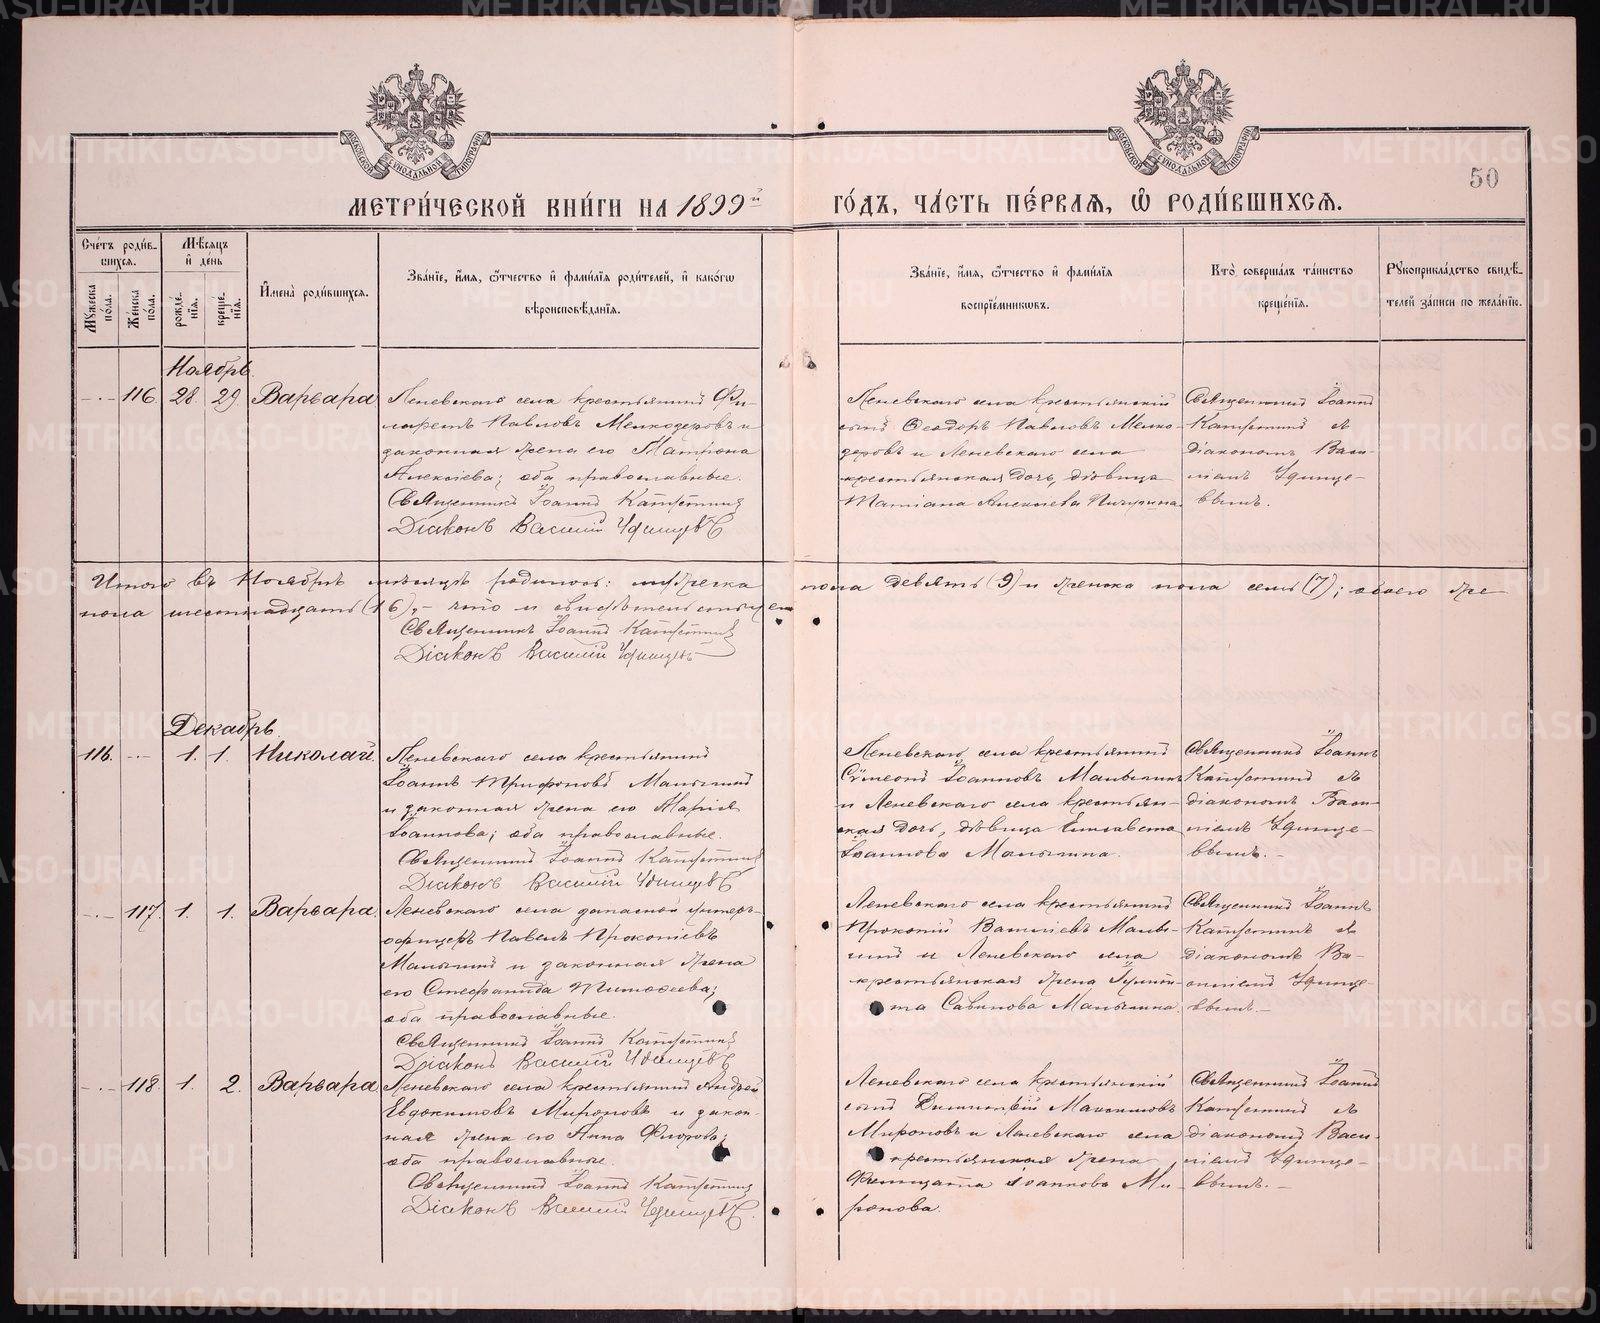 МЕТРИ́ЧЕСКОЙ КНИ́ГИ НА 1899й
ГО́ДЪ, ЧА́СТЬ ПЕ́РВАЯ, Ѡ РОДИ́ВШИХСЯ.
50
Сче́тъ роди́в-
шихся.
Мѣ́сяцъ
и҆ де́нь
Му́жеска
по́ла.
Же́нска
по́ла.
рожде́-
нія.
креще́-
нія.
И҆мена̀ роди́вшихся.
Зва́нїе, и҆́мя, ѻ҆́тчество и҆ фами́лїя роди́телей, и҆ како́гѡ
вѣроисповѣ́данїя.
Зва́нїе, и҆́мя, ѻ҆́тчество и҆ фами́лїя
воспрїе́мниковъ.
Кто̀ соверша́лъ та́инство
креще́нїя.
Рꙋкоприкла́дство свидѣ́-
телей за́писи по жела́нїю.
Ноябрь.
116. 28. 29. Варвара
Леневскаго села крестьянинъ Фи-
ларетъ Павловъ Мелкодеровъ и
законная жена его Матрона
Алексіева; оба православные.
Священникъ Іоаннъ
Діаконъ Василій Удинцевъ
Леневскаго села крестьянскій
сынъ Ѳеодоръ Павловъ Мелко-
деровъ и Леневскаго села
крестьянская дочь, дѣвица
Татіана Алексіева Пичугина.
Священникъ Іоаннъ
съ
діакономъ Васи-
ліемъ Удинце-
вымъ.
Итого въ Ноябрѣ мѣсяцѣ родилось: мужеска пола девять (9) и женска пола семь (7); обоего же
пола шестнадцать (16), – что и свидѣтельствуемъ
Священникъ Іоаннъ
Діаконъ Василій Удинцевъ
Декабрь.
116. 1. 1. Николай.
Леневскаго села крестьянинъ
Іоаннъ Трифоновъ Малыгинъ
и законная жена его Марія
Іоаннова; оба православные.
Священникъ Іоаннъ
Діаконъ Василій Удинцевъ
Леневскаго села крестьянинъ
Сѵмеонъ Іоанновъ Малыгинъ
и Леневскаго села крестьян-
ская дочь, дѣвица Елисавета
Іоаннова Малыгина.
Священникъ Іоаннъ
съ
діакономъ Васи-
ліемъ Удинце-
вымъ.–
117. 1. 1. Варвара.
Леневскаго села запасной унтеръ-
офицеръ Павелъ Прокопіевъ
Малыгинъ и законная жена
его Стефанида Тимоѳеева;
оба православные.
Священникъ Іоаннъ
Діаконъ Василій Удинцевъ
Леневскаго села крестьянинъ
Прокопій Василіевъ Малы-
гинъ и Леневскаго села
крестьянская жена Іулит-
та Саввинова Малыгина.
Священникъ Іоаннъ
съ
діакономъ Ва-
силіемъ Удинце-
вымъ.–
118. 1. 2. Варвара
Леневскаго села крестьянинъ Андрей
Евдокимовъ Мироновъ и закон-
ная жена его Анна Флорова;
оба православные.
Священникъ Іоаннъ
Діаконъ Василій Удинцевъ.
Леневскаго села крестьянскій
сынъ Димитрій Максимовъ
Мироновъ и Леневскаго села
крестьянская жена
Фелицата Іоаннова Ми-
ронова.
Священникъ Іоаннъ
съ
діакономъ Васи-
ліемъ Удинце-
вымъ.–
METRIKI.GASO-URAL.RU